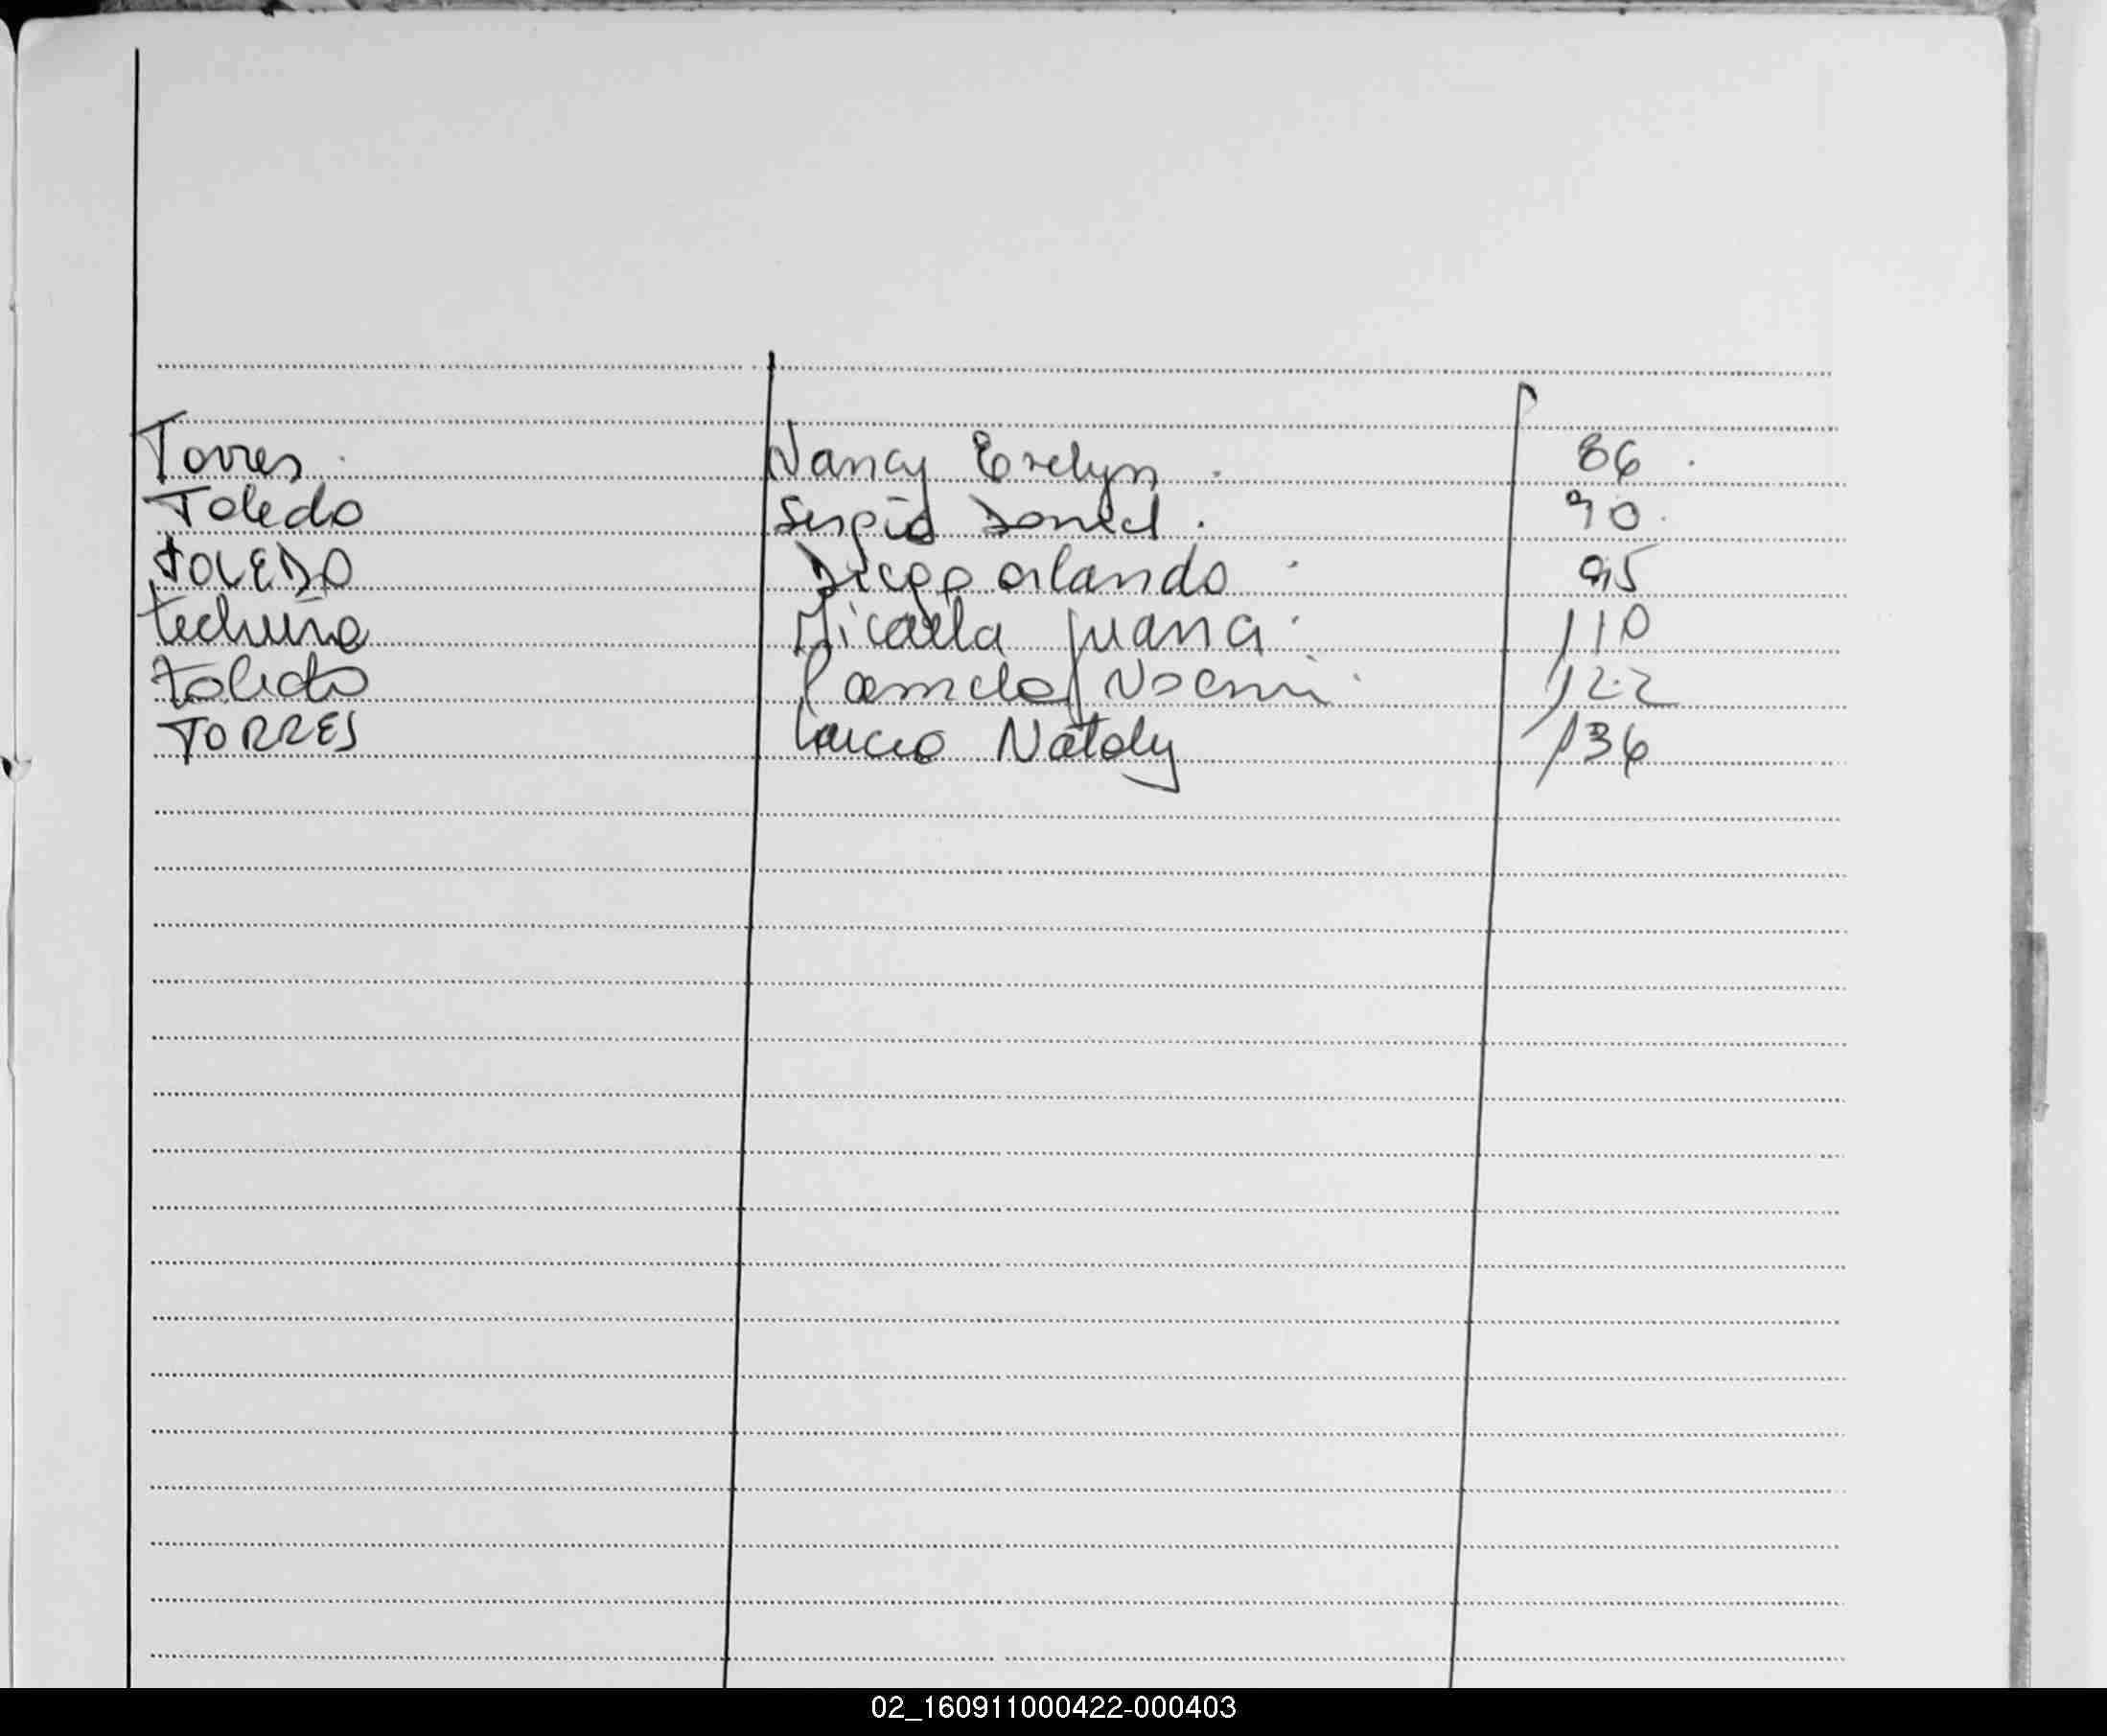 Torres Nancy Evelyn 86
Toledo Sergio Daniel 90
TOLEDO Diego orlando 95
techuiña Micaela Juana 110
toledo Pamela Noemi 122
TORRES Nataly 136
02_160911000422-000403